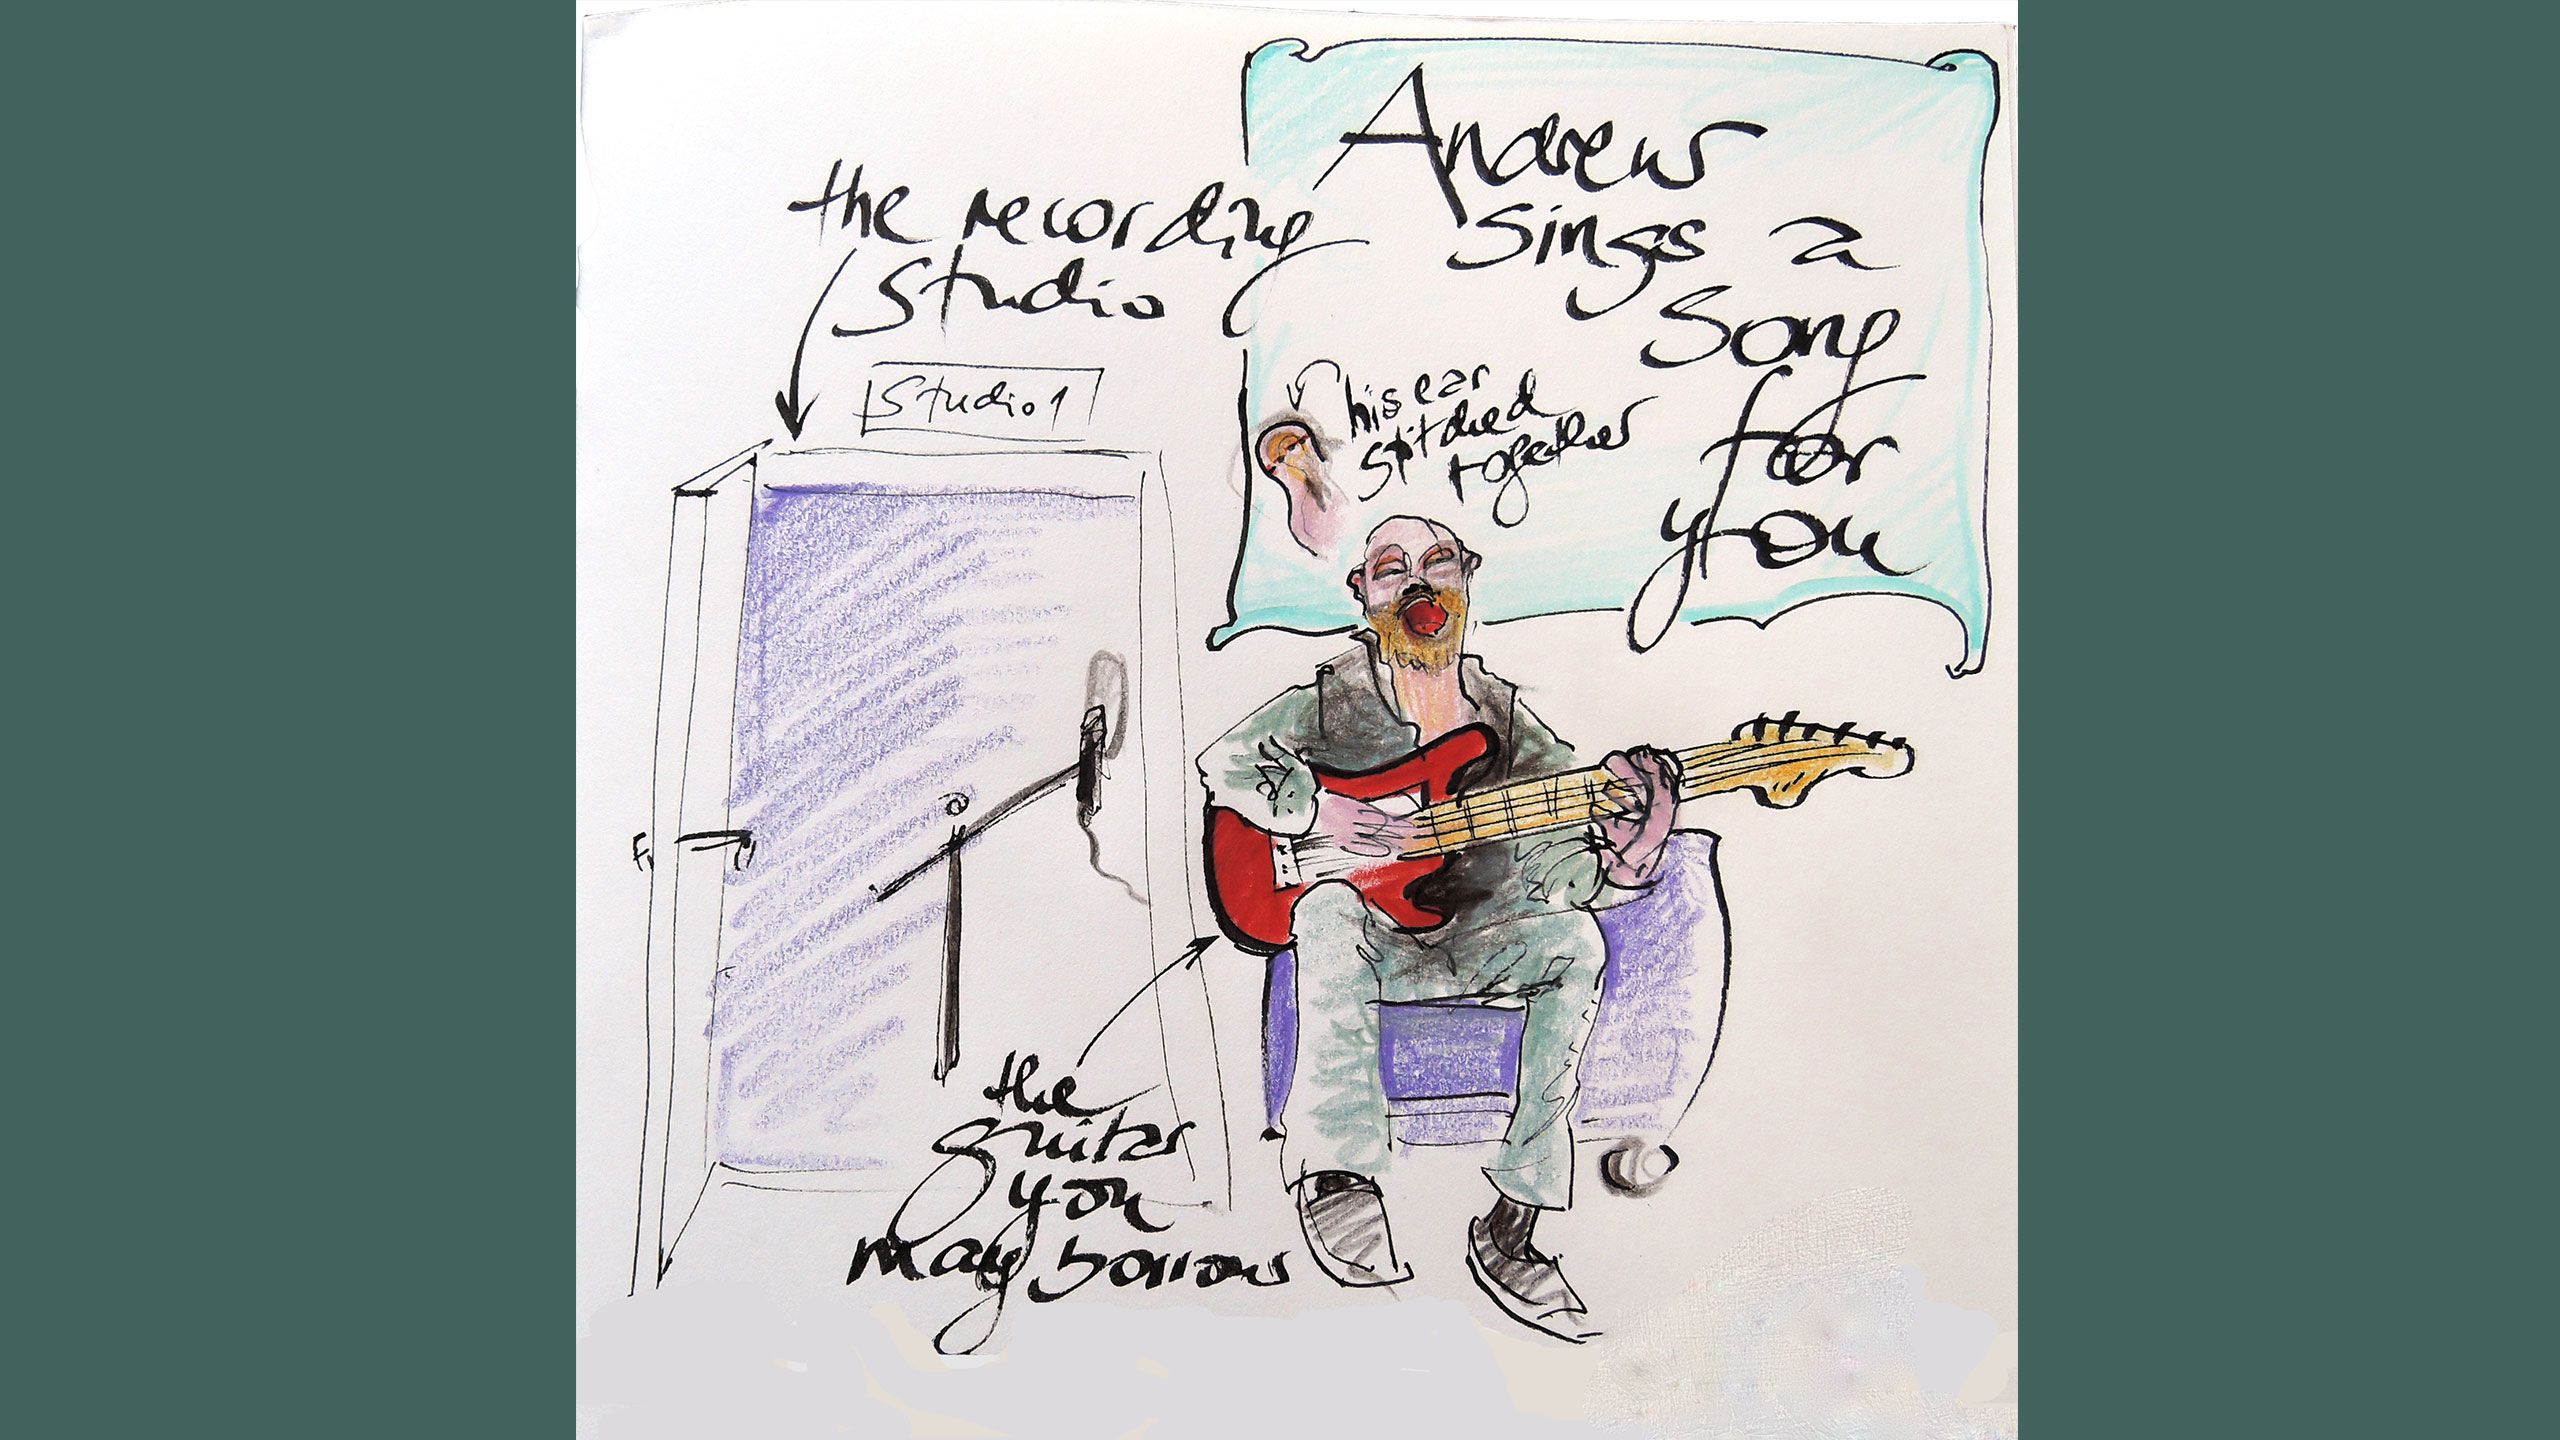 the recording
studio
Studio 1
Andrew
sings a
song
for
you
his ear
stitched
together
the
guitar
you
may borrow